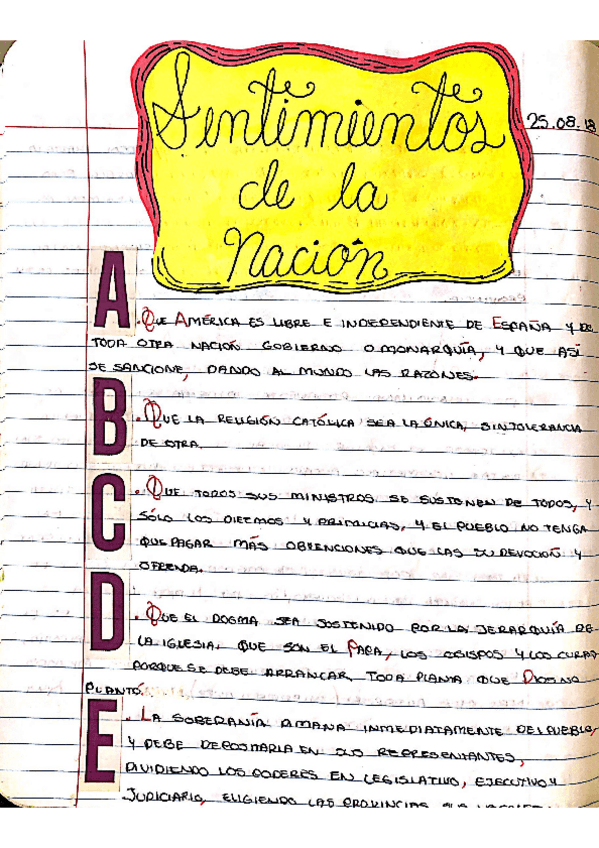 Sentimientos
de la
Nación
25.08.18
A
.Que América es libre e independiente de España y de
toda otra nación gobierno o monarquía, y que así
se sancione, dando al mundo las razones.
B
.Que la religión católica sea la única, sin tolerancia
de otra.
C
.Que todos sus ministros se sustenen de todos, y
sólo los diezmos y primicias, y el pueblo no tenga
que pagar más obvenciones que las su devoción y
ofrenda.
D
.Que el dogma sea sostenido por la jerarquía de
la iglesia, que son el Papa, los obispos y los curas
porque se debe arrancar, toda planta que Dios no
plantó.
E
.La soberanía dmana inmediatamente del pueblo,
y debe depositarla en sus representantes,
dividiendo los poderes en legislativo, ejecutivo y
judiciario, eligiendo las provincias sus